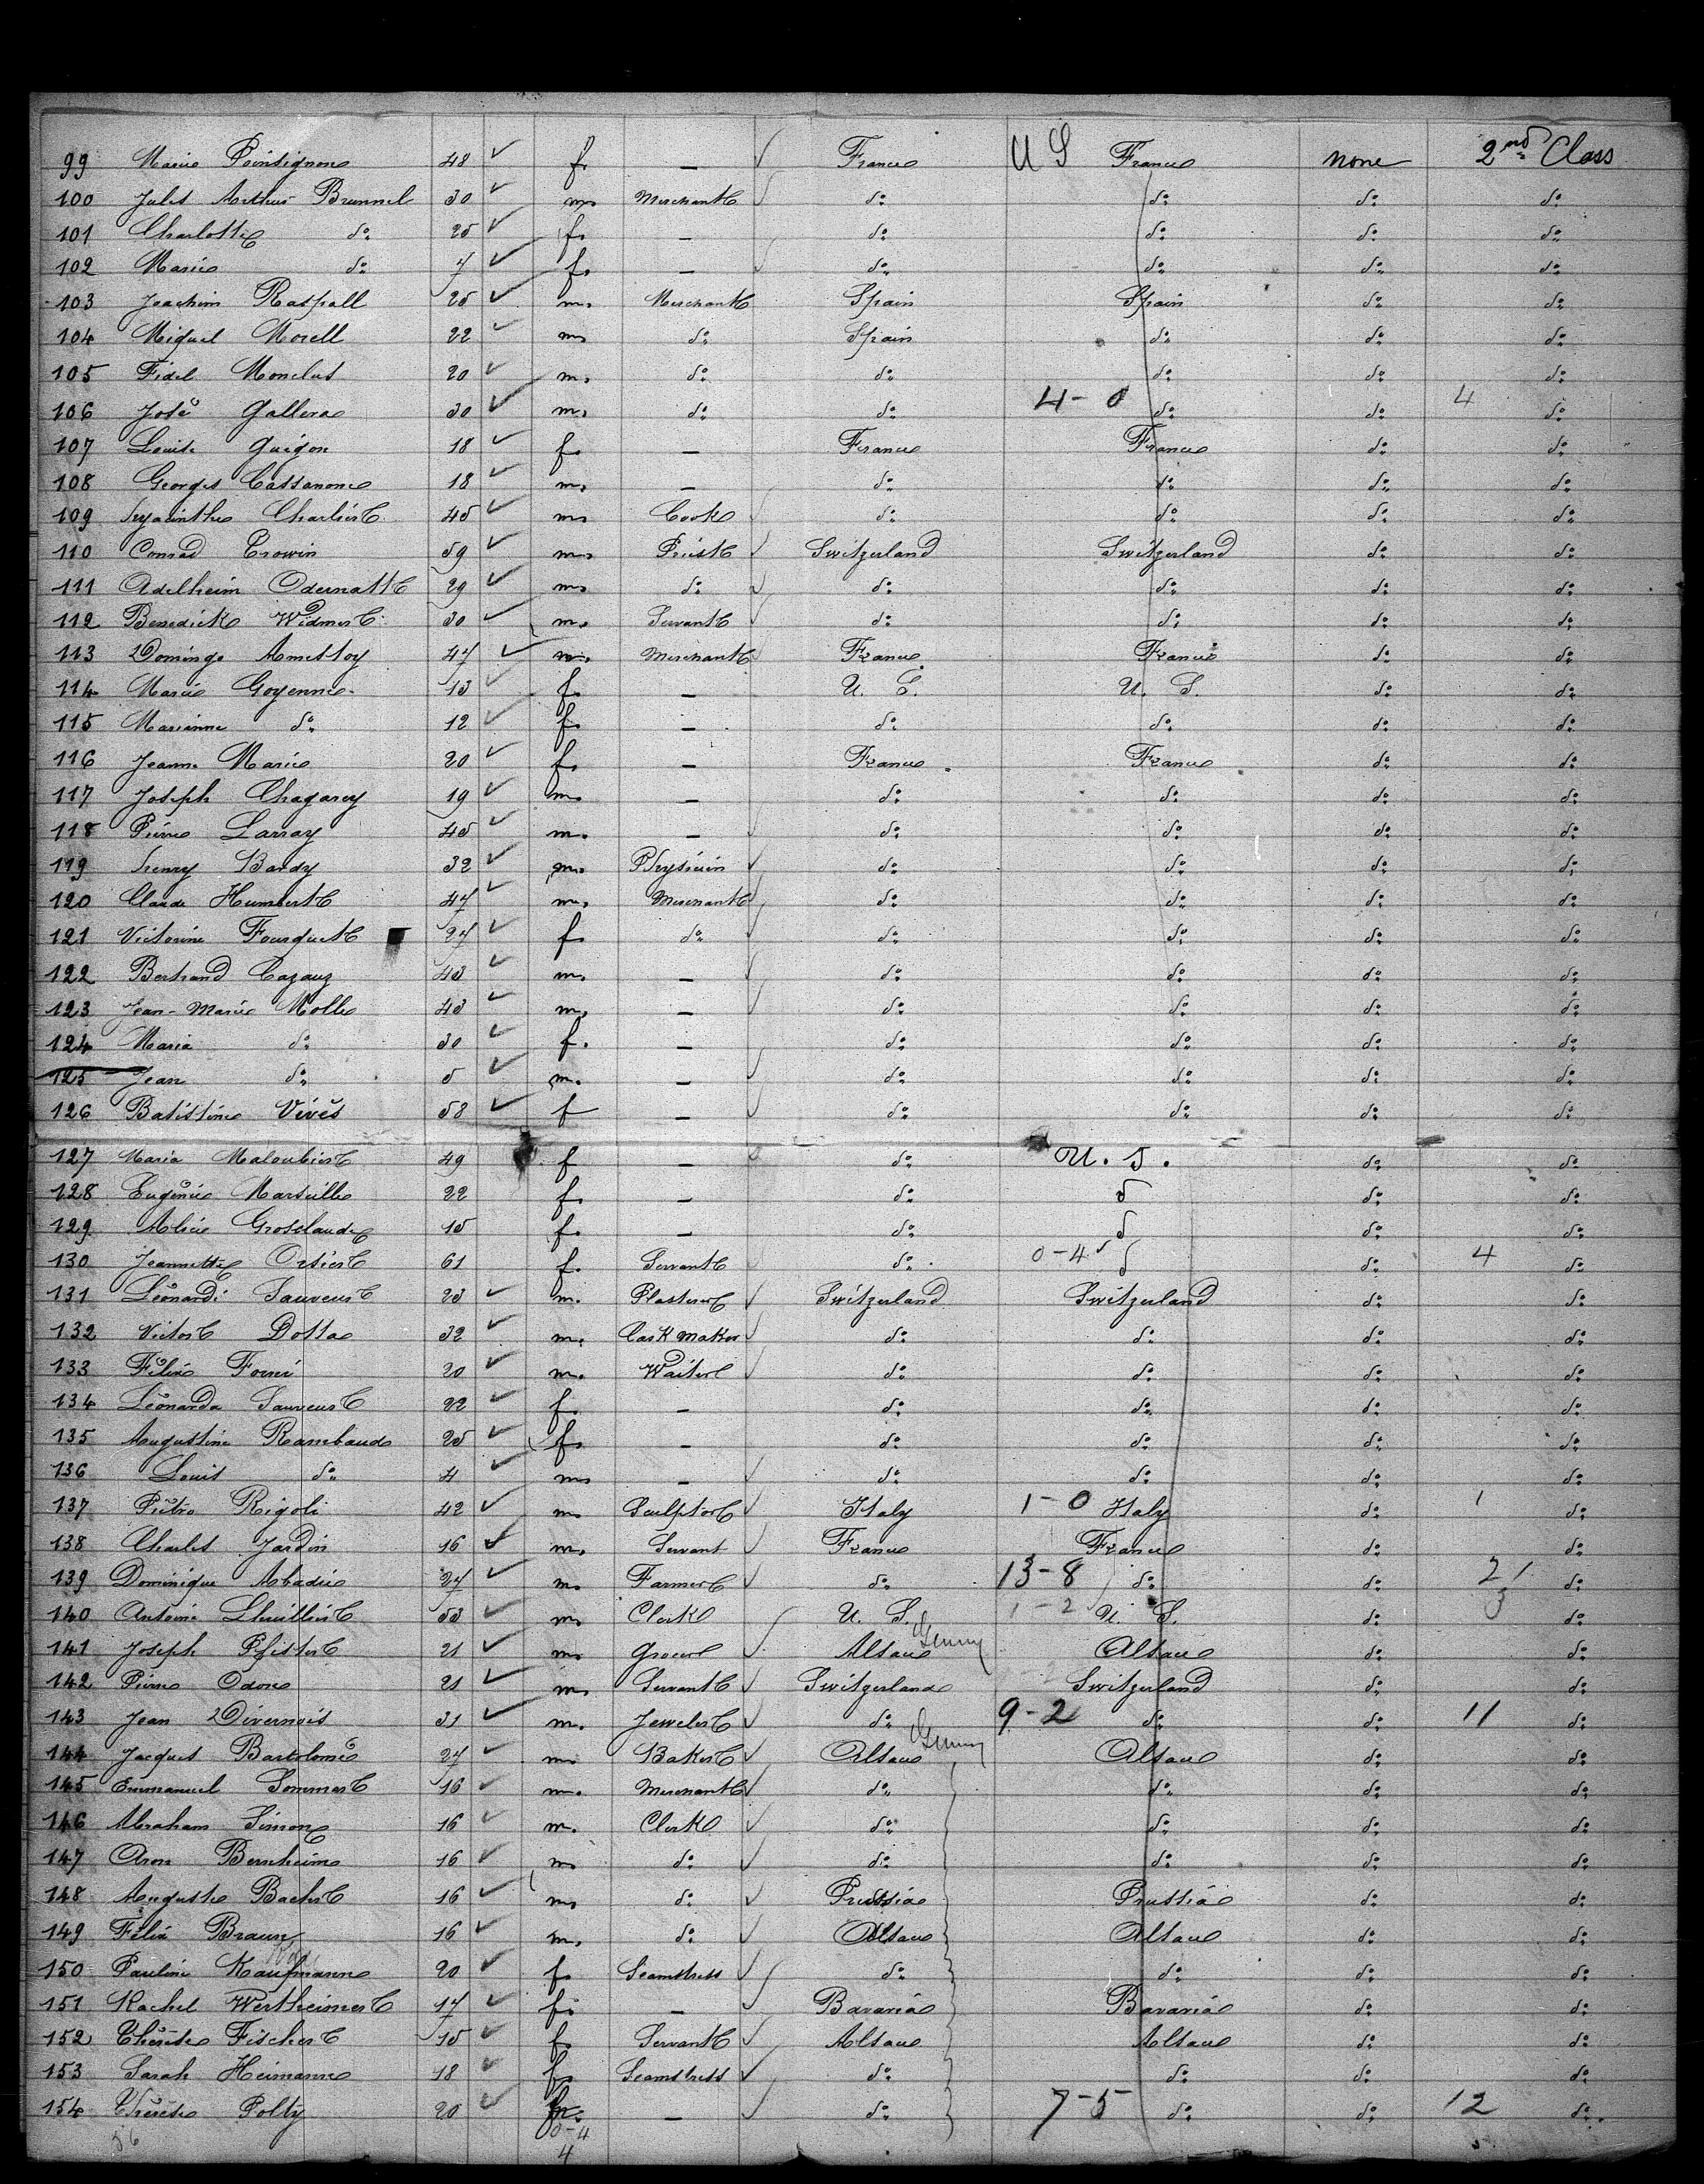 99 Marie Poinsignon 48 f. — France U S France none 2nd Class
100 Jules Arthur Brunnel 30 m. Merchant do do do do
101 Charlotte do 25 f. — do do do do
102 Marie do 7 f. — do do do do
103 Joachim Raspall 25 m. Merchant Spain Spain do do
104 Miguel Morell 22 m do Spain do do do
105 Fidel Monclus 20 m. do do do do do
106 José Gallera 30 m. do do 4-0 do do 4 do
107 Louise Guigon 18 f. — France France do do
108 Georges Cassanone 18 m. — do do do do
109 Hyacinthe Charlier 45 m. Cook do do do do
110 Conrad Erowin 59 m. Priest Switzerland Switzerland do do
111 Adelheim Odermatt 29 m. do do do do do
112 Benedick Widmer 30 m. Servant do do do do
113 Domingo Amestoy 47 m. Merchant France France do do
114 Marie Goyenne 13 f. — U. S. U. S. do do
115 Marianne do 12 f. — do do do do
116 Jeanne Marie 20 f. — France France do do
117 Joseph Chagarey 19 m. — do do do do
118 Pierre Larray 45 m. — do do do do
119 Henry Bardy 32 m. Physicien do do do do
120 Claude Humbert 47 m. Merchant do do do do
121 Victorine Fourquet 27 f do do do do do
122 Bertrand Cazauz 43 m. — do do do do
123 Jean-Marie Molle 43 m. — do do do do
124 Maria do 30 f. — do do do do
125 Jean do 5 m. — do do do do
126 Batistine Vivès 58 f — do do do do
127 Maria Maloubier 49 f — do U. S. do do
128 Eugénie Marseille 22 f. — do d do do
129 Alice Grosclaude 15 f. — do d do do
130 Jeannette Ortier 61 f. Servant do 0-4 d do 4 do
131 Léonardi Sauveur 23 m. Plasterer Switzerland Switzerland do do
132 Victor Dotta 32 m. Cask maker do do do do
133 Félix Forni 20 m. Waiter do do do do
134 Léonarda Sauveur 22 f. — do do do do
135 Augustine Rambaud 25 f. — do do do do
136 Louis do 4 m. — do do do do
137 Pietro Rigoli 42 m. Sculptor Italy 1-0 Italy do 1 do
138 Charles Jardin 16 m. Servant France France do do
139 Dominique Abadie 27 m. Farmer do 13-8 do do 21 do
140 Antoine Lhuillier 53 m. Clerk U. S. 1-2 U. S. do 3 do
141 Joseph Pfister 21 m. Grocer Alsace Germy Alsace do do
142 Pierre Odone 21 m. Servant Switzerland Switzerland do do
143 Jean Divernois 31 m. Jeweler do 9-2 do do 11 do
144 Jacques Bartolomé 27 m. Baker Alsace Germy Alsace do do
145 Emmanuel Sommer 16 m. Merchant do do do do
146 Abraham Simon 16 m. Clerk do do do do
147 Aron Bernheim 16 m do do do do do
148 Auguste Bacher 16 m. do Prussia Prussia do do
149 Félix Braun 16 m. do Alsace Alsace do do
150 Pauline Kaufmann 20 f. Seamstress do do do do
151 Rachel Wertheimer 17 f. — Bavaria Bavaria do do
152 Thérèse Fischer 15 f. Servant Alsace Alsace do do
153 Sarah Heimann 18 f. Seamstress do do do do
154 Thérèse Polty 20 f. — do 7-5 do do 12 do
56 0-4
4